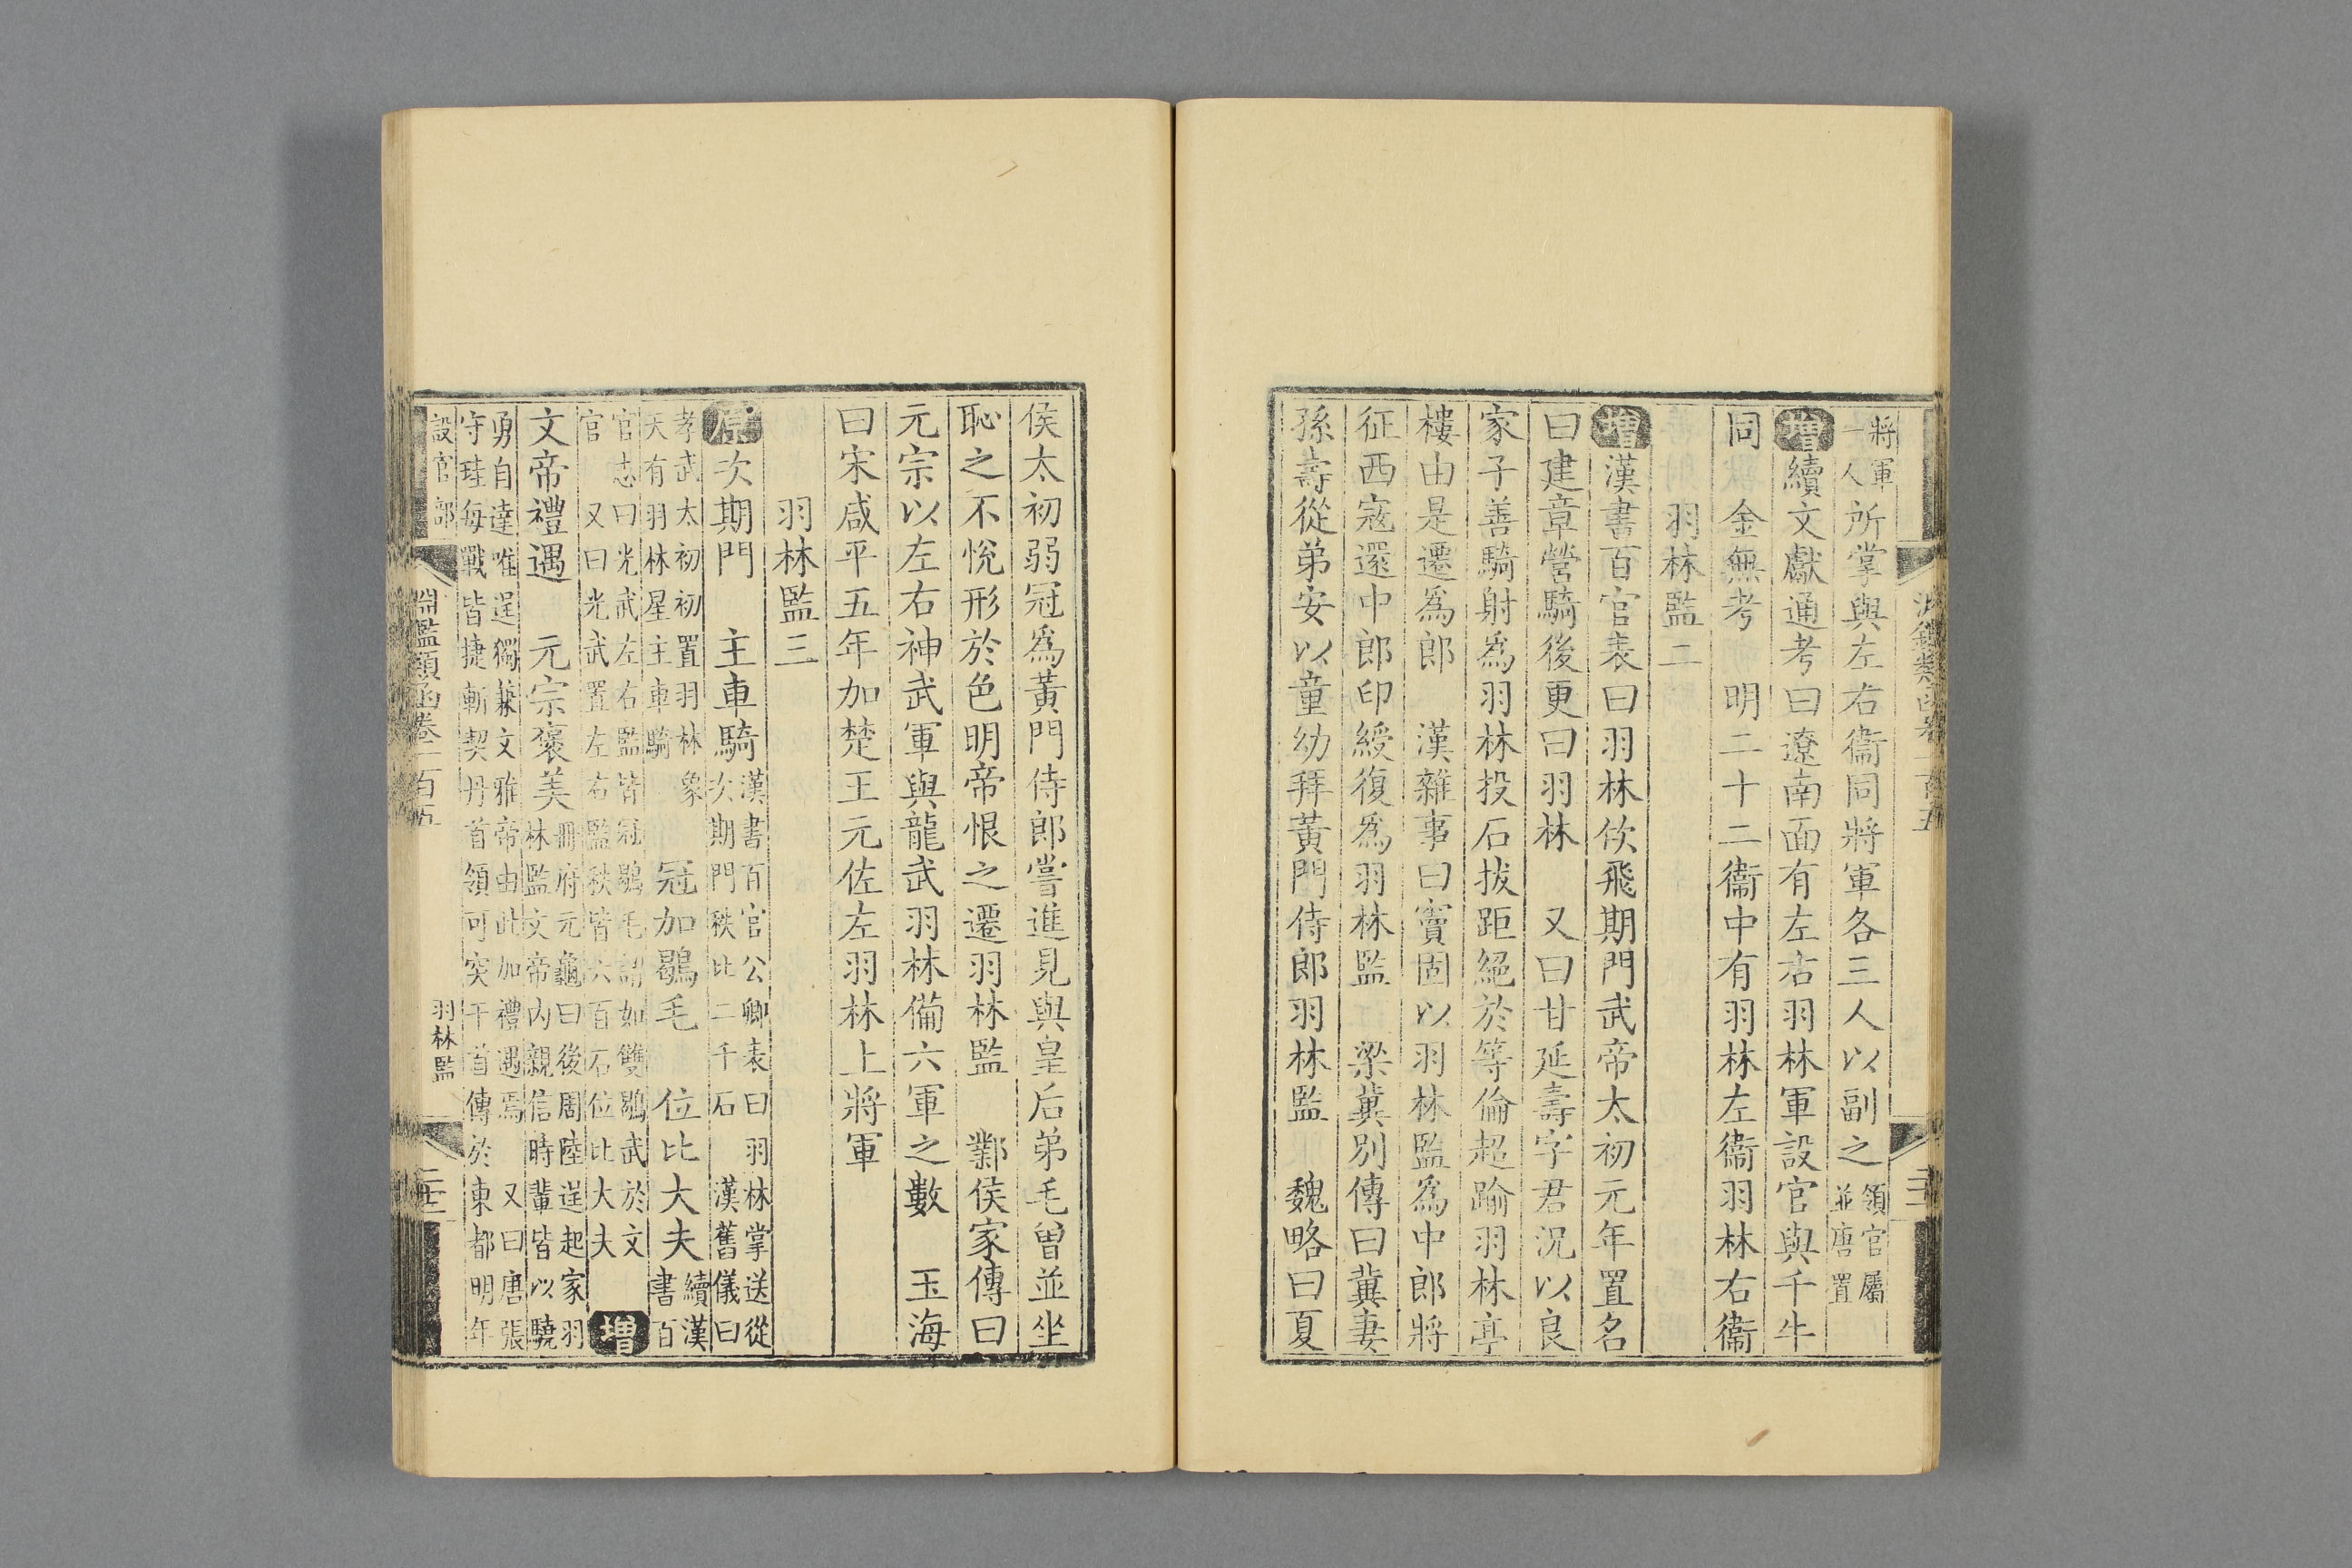 將軍一人所掌與左右衞同將軍各三人以副之領官屬並唐置
增續文獻通考曰遼南面有左右羽林軍設官與千牛
同　金無考　明二十二衞中有羽林左衞羽林右衞
羽林監二
增漢書百官表曰羽林佽飛期門武帝太初元年置名
曰建章營騎後更曰羽林　又曰甘延壽字君況以良
家子善騎射爲羽林投石拔距絕於等倫超踰羽林亭
樓由是遷爲郎　漢雜事曰竇固以羽林監爲中郎將
征西寇還中郎印綬復爲羽林監　梁冀別傳曰冀妻
孫壽從弟安以童幼拜黃門侍郎羽林監　魏略曰夏
侯太初弱冠爲黃門侍郎嘗進見與皇后弟毛曾並坐
恥之不悅形於色明帝恨之遷羽林監　鄴侯家傳曰
元宗以左右神武軍與龍武羽林備六軍之數　玉海
曰宋咸平五年加楚王元佐左羽林上將軍
羽林監三
原次期門　主車騎漢書百官公卿表曰羽林掌送從次期門秩比二千石　漢舊儀曰
孝武太初初置羽林象天有羽林星主車騎　冠加鶡毛　位比大夫續漢書百
官志曰光武左右監皆冠鶡毛謂如雙鶡武於文官　又曰光武置左右監秩皆六百石位比大夫增
文帝禮遇　元宗褒美冊府元龜曰後周陸逞起家羽林監文帝內親信時輩皆以驍
勇自達唯逞獨兼文雅帝由此加禮遇焉　又曰唐張守珪每戰皆捷斬契丹首領可突干首傳於東都明年
設官部
淵鑑類函卷一百五
羽林監